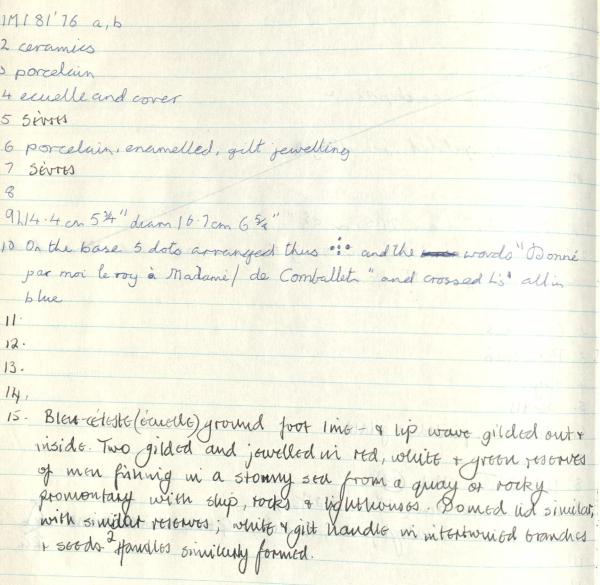 1M181'76 a,b
2 ceramics
3 porcelain
4 ecuelle and cover
5 SÈVRES
6 porcelain, enamelled, gilt jewelling
7 SÈVRES
8
9 h14.4 cm 5 3/4" diam 16.7cm 6 5/8"
10 On the base 5 dots arranged thus and the words "Donné
par moi le roy à Madame/ de Comballet" and crossed L's" all in
blue
11.
12.
13.
14.
15. Bleu-céleste (écuelle) ground foot line - & lip wave gilded out &
inside. Two gilded and jewelled in red, white & green reserves
of men fishing in a stormy sea from a quay or rocky
promontary with ship, rocks & lighthouses. Domed lid similar,
with similar reserves; white & gilt handle in intertwined branches
& seeds 2 Handles similarly formed.